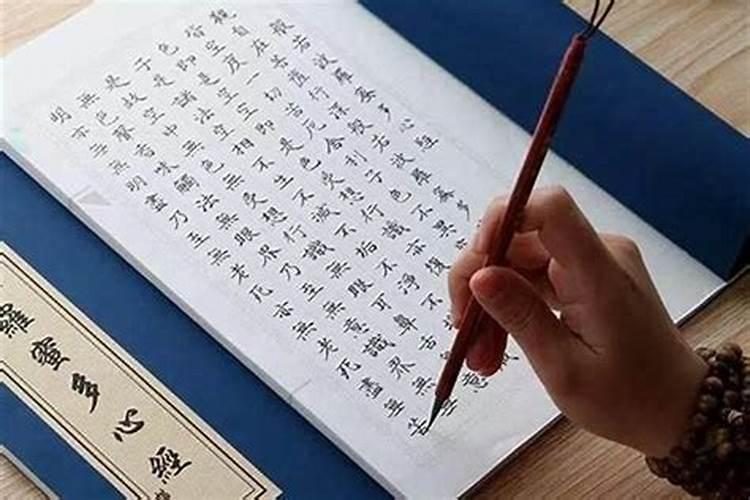 般若波羅蜜多心經
觀自在菩薩行深般若波羅蜜多
皆空度一切苦厄舍利子色不異
色即是空空即是色受想行識亦復
子是諸法空相不生不滅不垢不淨不
是故空中無色無受想行識無眼耳鼻舌
無色聲香味觸法無眼界乃至無意識界無
明亦無無明盡乃至無老死亦無老死盡無苦
羅蜜多心經